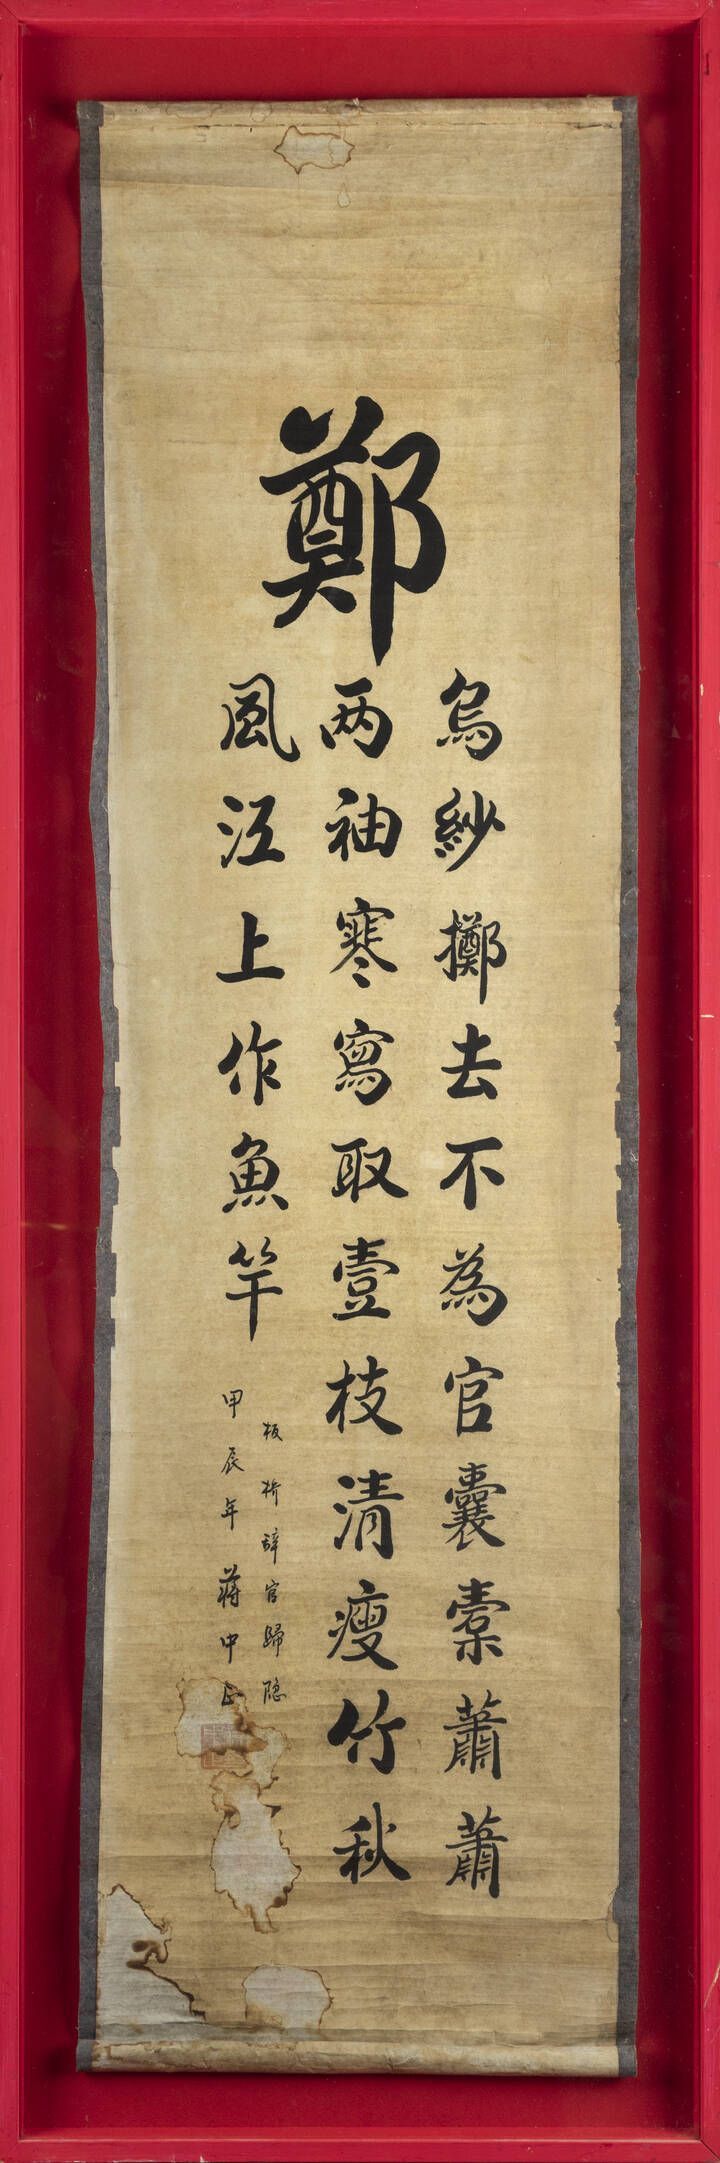 鄭
烏紗擲去不為官囊橐蕭蕭
两袖寒寫取壹枝清瘦竹秋
風江上作魚竿
板橋辞官歸隐
甲辰年蒋中正